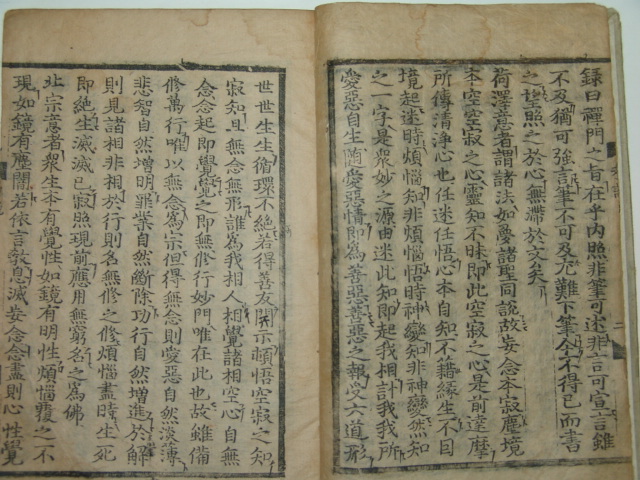 錄曰禪門之旨在乎內照非筆可述非言可宣言雖
不及猶可強言筆不可及尤難下筆今不得已而書
之望照之於心無滯於文矣
荷澤意者謂諸法如夢諸聖同說故妄念本寂塵境
本空空寂之心靈知不昧即此空寂之心是前達摩
所傳清淨心也任迷任悟心本自知不藉緣生不因
境起迷時煩惱知非煩惱悟時神變知非神變然知
之一字是衆妙之源由迷此知即起我相計我我所
愛惡自生隨愛惡情即爲善惡善惡之報受六道形
世世生生循環不絶若得善友開示頓悟空寂之知
寂知且無念無形誰爲我相人相覺諸相空心自無
念念起即覺覺之即無修行妙門唯在此也故雖備
修萬行唯以無念爲宗但得無念則愛惡自然淡薄
悲智自然增明罪業自然斷除功行自然增進於解
則見諸相非相於行則名無修之修煩惱盡時生死
即絶生滅滅已寂照現前應用無窮名之爲佛
北宗意者衆生本有覺性如鏡有明性煩惱覆之不
現如鏡有塵闇若依言敎息滅妄念念盡則心性覺